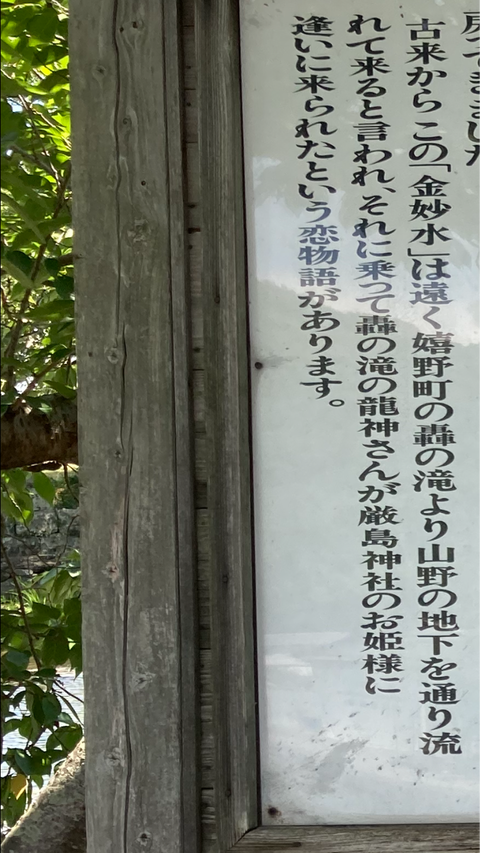 古来からこの「金妙水」は遠く嬉野町の轟の滝より山野の地下を通り流
れて来ると言われ、それに乗って轟の滝の龍神さんが厳島神社のお姫様に
逢いに来られたという恋物語があります。